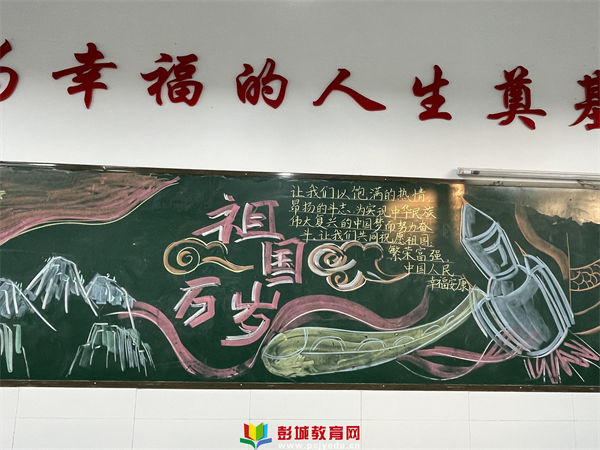 幸福的人生奠基
祖国
万岁
让我们以饱满的热情
昂扬的斗志、为实现中华民族
伟大复兴的中国梦而努力奋
斗,让我们共同祝愿祖国
繁荣富强,
中国人民
幸福安康
彭城教育网
www.pcjyedu.cn